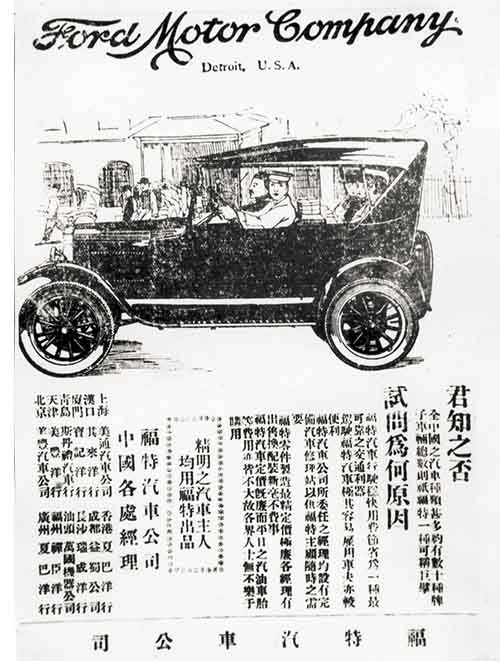 Ford Motor Company
Detroit, U.S.A.
君知之否
全中國之汽車種類甚多約有數十種牌
子車輛總數則祇福特一種可稱巨擘
試問爲何原因
福特汽車行駛極快用費節省爲一種最
可靠之交通利器
駕駛福特汽車極其容易雇用車夫亦較
便利
福特汽車公司所委任之經理均設有完
備汽車修理站以供福特主顧隨時之需
要
福特零件製造最精定價極廉各經理有
出售換配裝新全不費事
福特汽車定價旣廉而平日之汽油車胎
等費用亦皆不大故各界人士無不樂予
購用
精明之汽車主人
均用福特出品
福特汽車公司
中國各處經理
上海 美通汽車公司 香港 夏巴洋行
漢口 其來洋行 成都 益蜀公司
廈門 寶記洋行 長沙 瑞成洋行
青島 斯丹禮汽車行 汕頭 萬國機器公司
天津 美豐洋行 福州 禪臣洋行
北京 美豐汽車公司 廣州 夏巴洋行
福特汽車公司